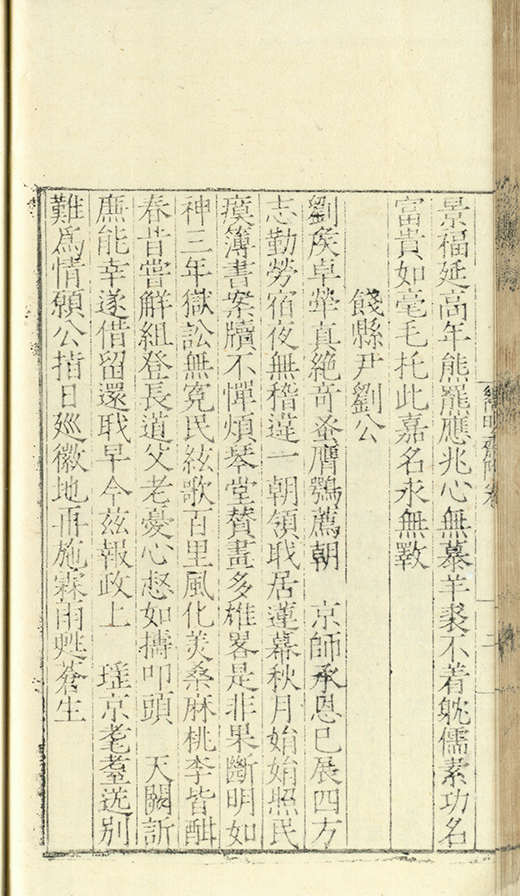 景福延高年熊羆應兆心無慕羊裘不着躭儒素功名
富貴如毫毛托此嘉名永無斁
餞縣尹劉公
劉矦卓犖真絶竒蚤膺鶚薦朝 京師承恩巳展四方
志勤勞宿夜無稽違一朝領職居蓮幕秋月始始照民
瘼簿書案牘不憚煩琴堂賛畫多雄畧是非果斷明如
神三年獄訟無寃民絃歌百里風化羙桑麻桃李皆酣
春昔嘗解組登長道父老憂心惄如擣叩頭 天闕訴
廉能幸遂借留還職早今茲報政上 瑶京耄耋送别
難爲情願公指日廵徽地再施霖雨甦蒼生